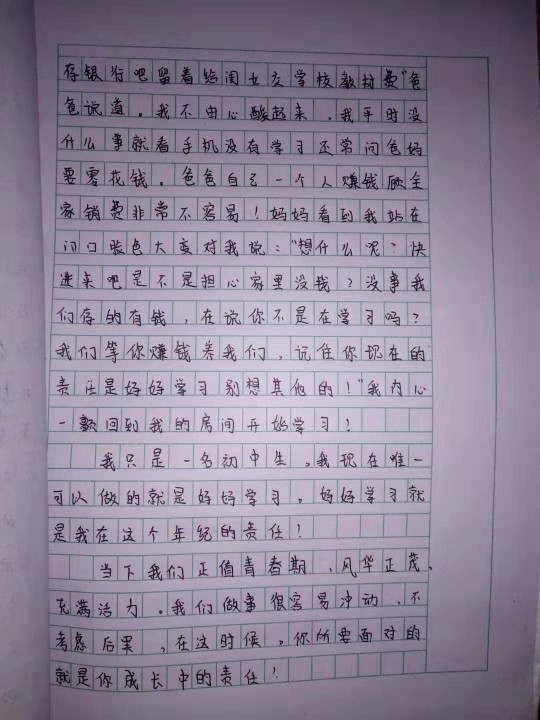 存银行吧留着给闺女交学校教材费"爸
爸说道。我不由心酸起来，我平时没
什么事就看手机没有学习还常问爸妈
要零花钱。爸爸自己一个人赚钱顾全
家销费非常不容易！妈妈看到我站在
门口脸色大变对我说："想什么呢？快
进来吧是不是担心家里没钱？没事我
们存的有钱，在说你不是在学习吗？
我们等你赚钱养我们，记住你现在的
责任是好好学习别想其他的！"我内心
一颤回到我的房间开始学习！
我只是一名初中生，我现在唯一
可以做的就是好好学习。好好学习就
是我在这个年纪的责任！
当下我们正值青春期，风华正茂、
充满活力。我们做事很容易冲动，不
考虑后果，在这时候。你所要面对的
就是你成长中的责任！